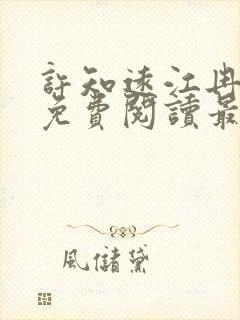 許知遠江冉
免費閱讀最
風儲黛